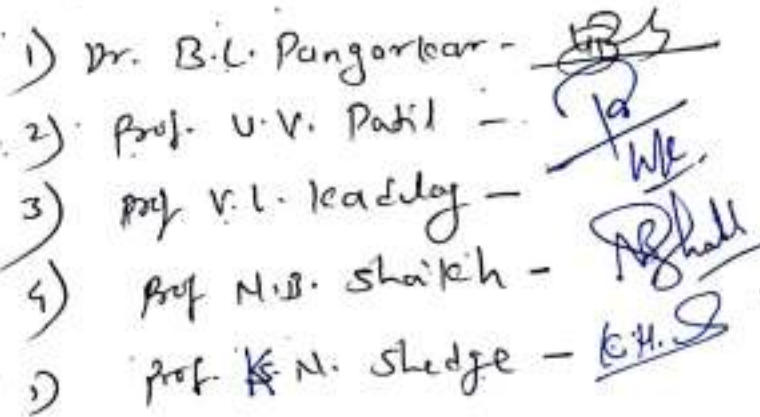 1) Dr. B.L. Pangarkar -
2) Prof. V.V. Patil -
3) Prof V.L. Kadlag -
4) Prof N.B. Shaikh -
5) Prof. K. N. Shedge - K.H.S